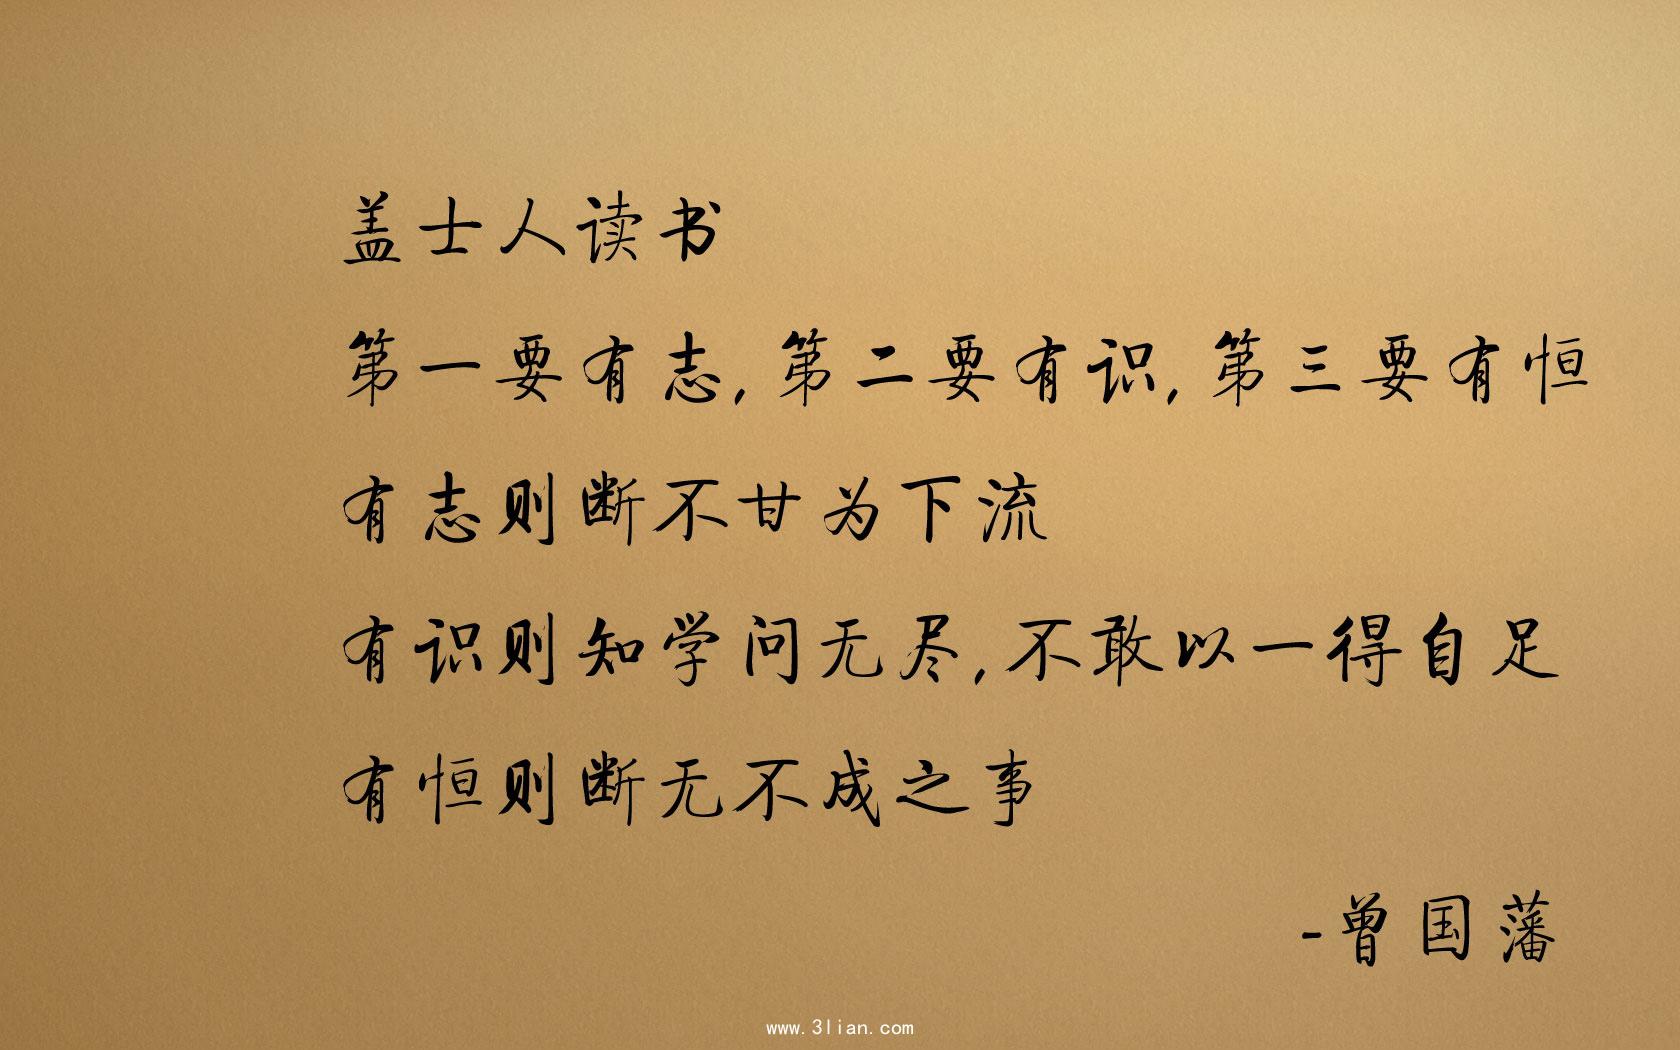 盖士人读书
第一要有志,第二要有识,第三要有恒
有志则断不甘为下流
有识则知学问无尽,不敢以一得自足
有恒则断无不成之事
-曾国藩
www.3lian.com